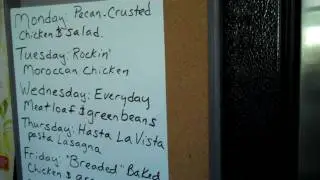 Monday: Pecan-Crusted
Chicken & salad.
Tuesday: Rockin'
Moroccan Chicken
Wednesday: Everyday
Meatloaf & green beans
Thursday: Hasta La Vista
pasta Lasagna
Friday: "Breaded" Baked
Chicken &